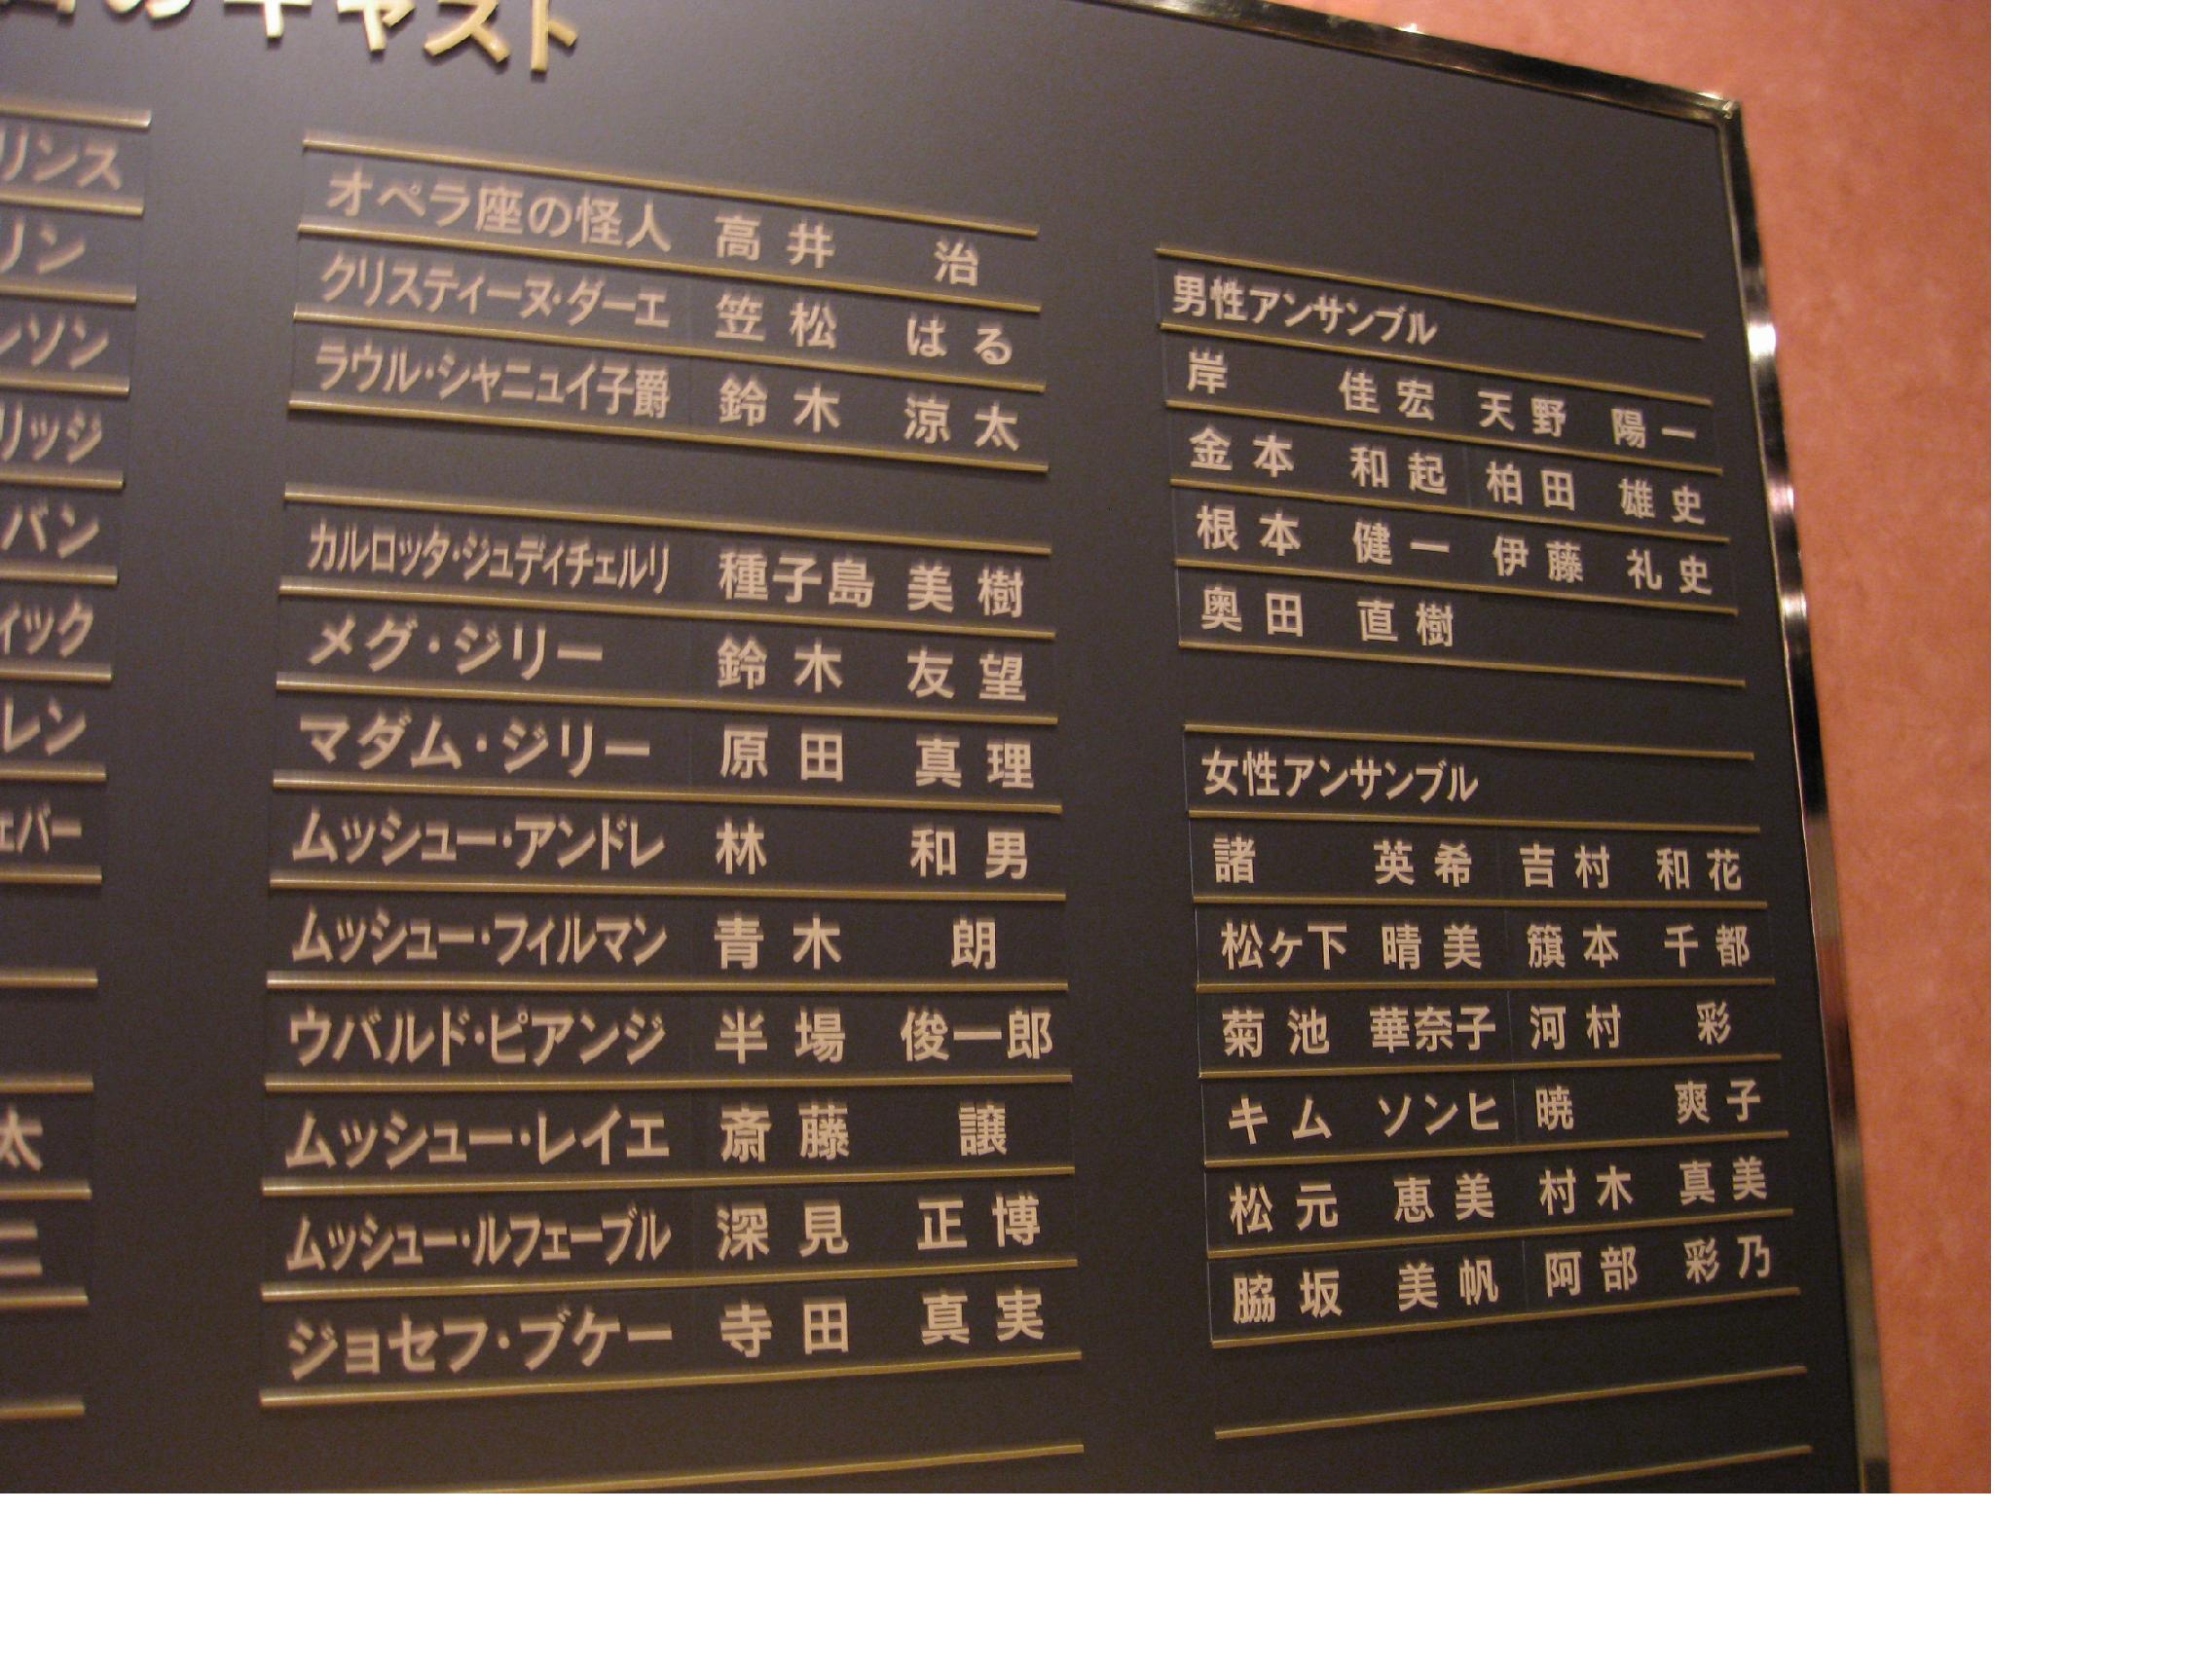 のキャスト
リンス
リン
ンソン
リッジ
バン
ィック
レン
ェバー
太
二
オペラ座の怪人 高井 治
クリスティーヌ・ダーエ 笠松 はる
ラウル・シャニュイ子爵 鈴木 涼太
カルロッタ・ジュディチェルリ 種子島 美樹
メグ・ジリー 鈴木 友望
マダム・ジリー 原田 真理
ムッシュー・アンドレ 林 和男
ムッシュー・フィルマン 青木 朗
ウバルド・ピアンジ 半場 俊一郎
ムッシュー・レイエ 斎藤 譲
ムッシュー・ルフェーブル 深見 正博
ジョセフ・ブケー 寺田 真実
男性アンサンブル
岸 佳宏 天野 陽一
金本 和起 柏田 雄史
根本 健一 伊藤 礼史
奥田 直樹
女性アンサンブル
諸 英希 吉村 和花
松ヶ下 晴美 籏本 千都
菊池 華奈子 河村 彩
キム ソンヒ 暁 爽子
松元 恵美 村木 真美
脇坂 美帆 阿部 彩乃